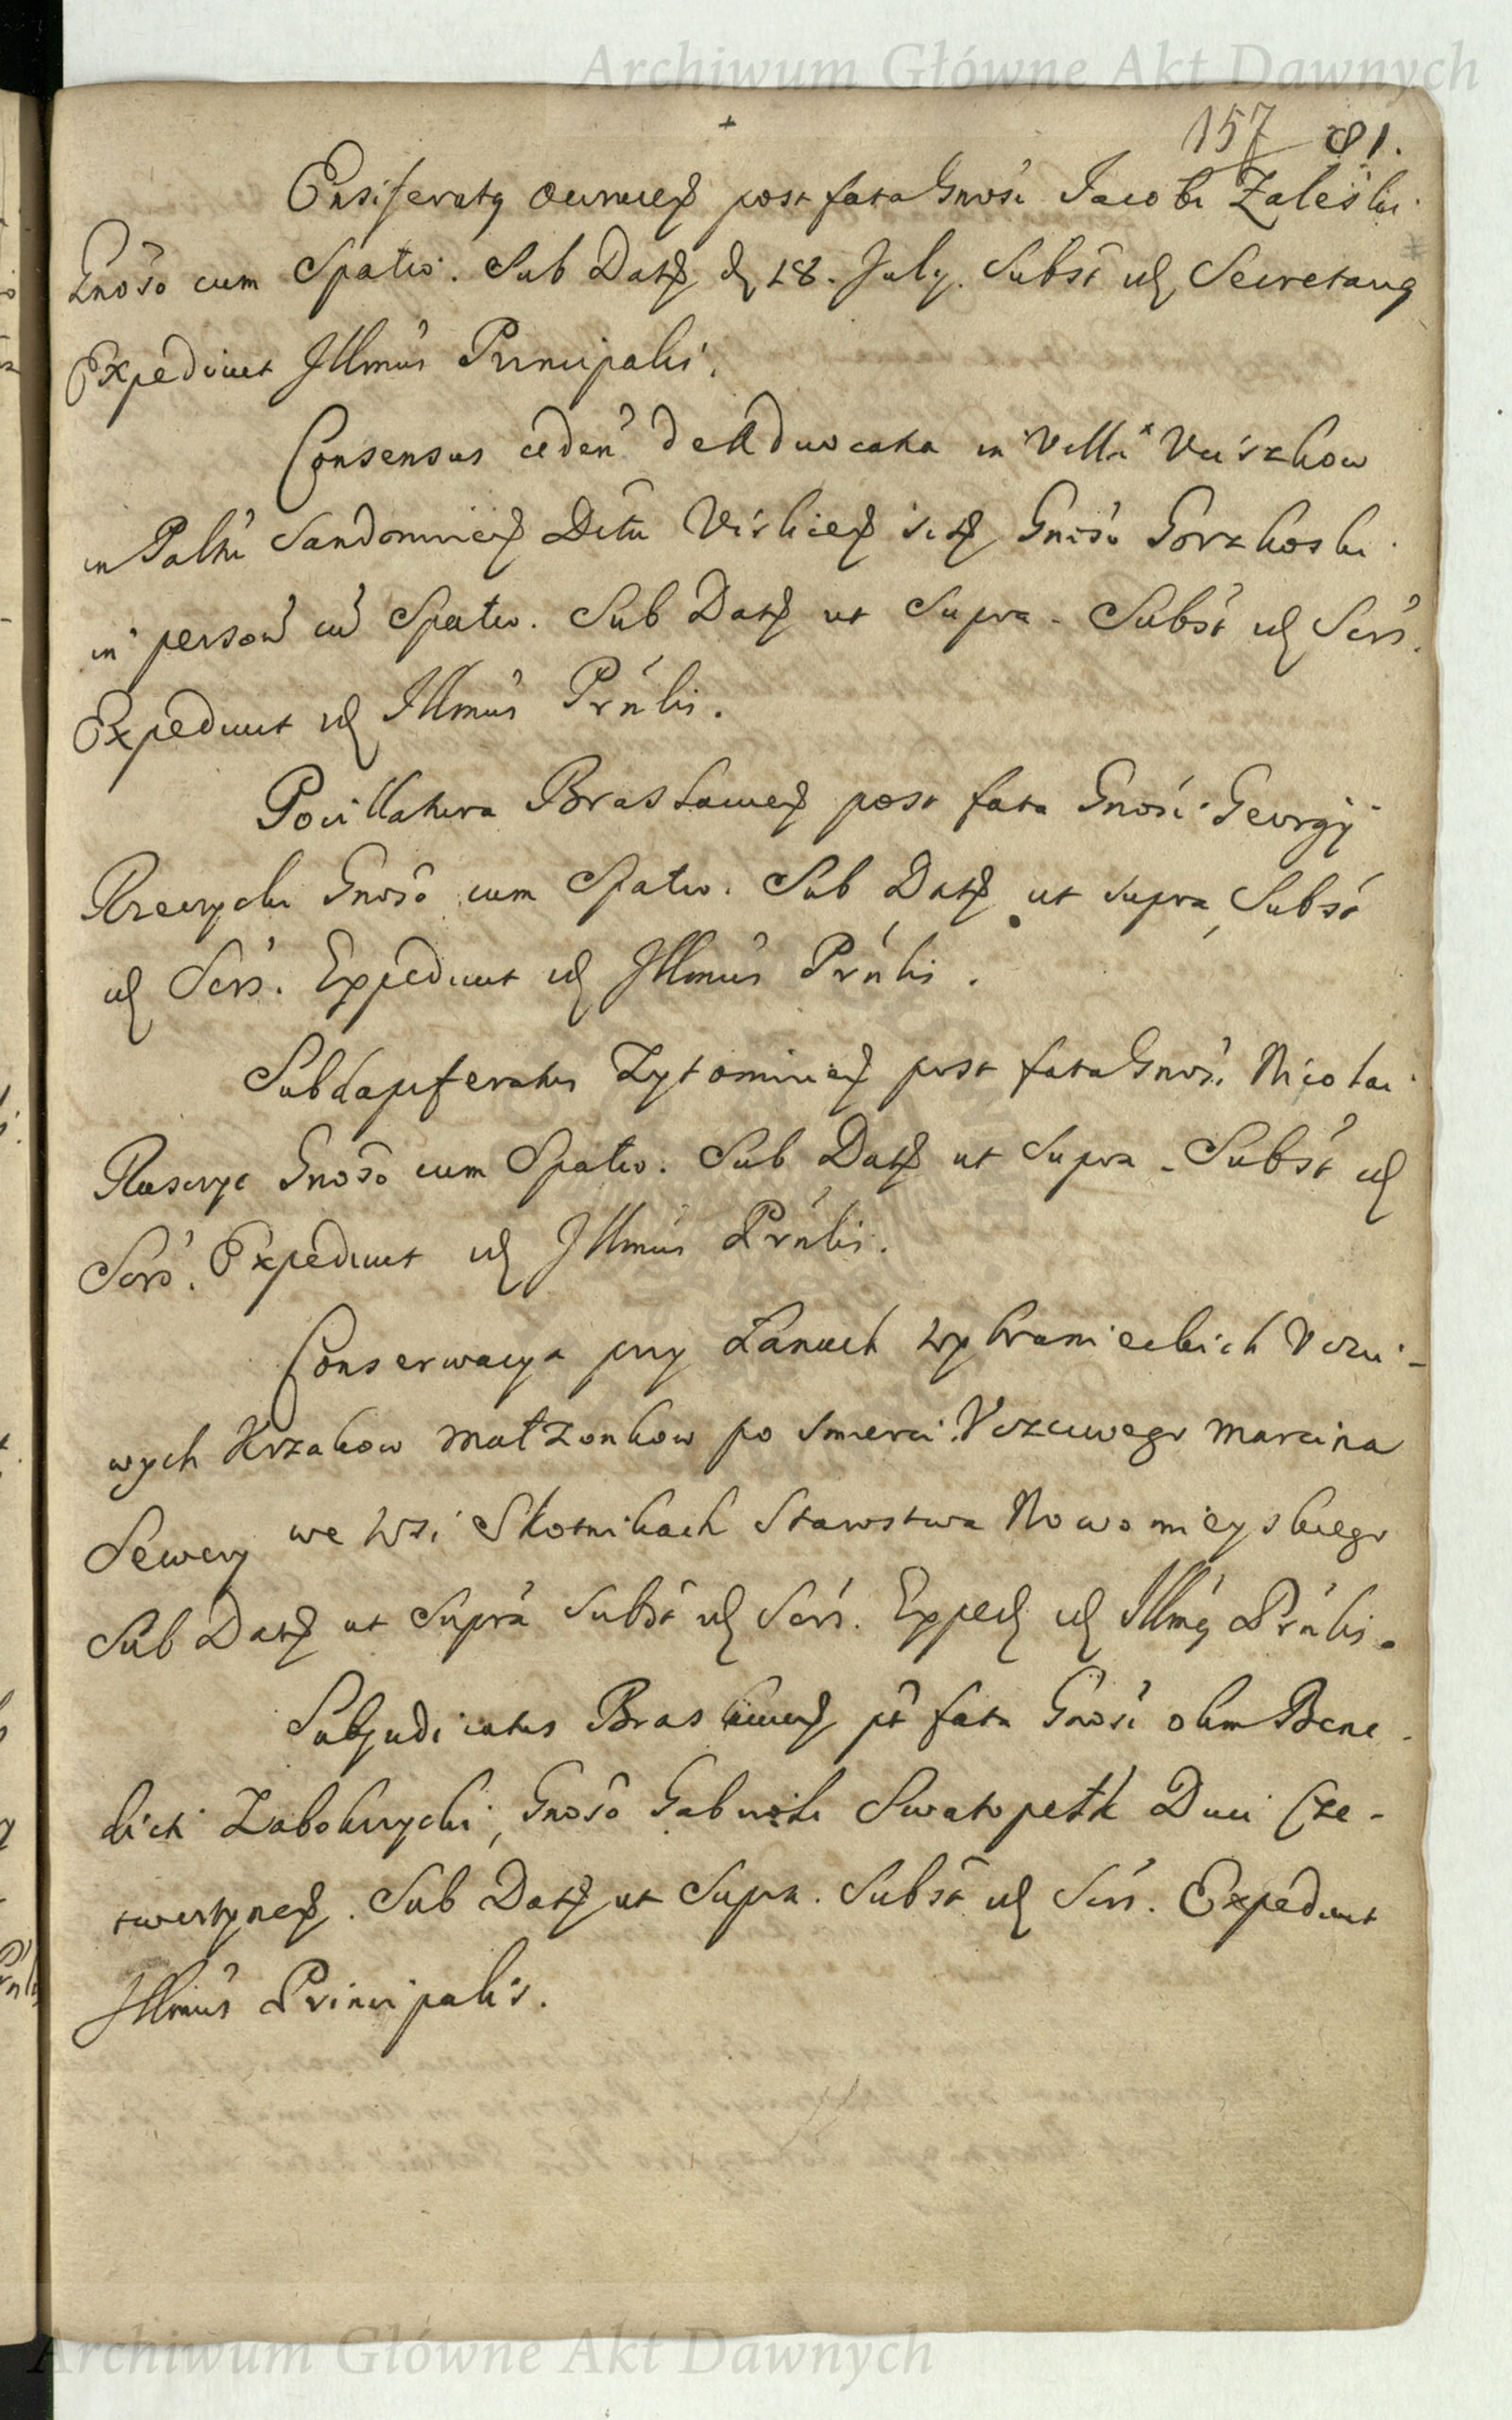 Archiwum Główne Akt Dawnych
157 81.
Ensiferatq post fata Gnosi Jacobi Zaleski
Gnoso cum Spatio. Sub Datt d 18. July. Subst ut Secretarq
Expediuit Illmus Principalis.
Consensus ceden de Aduocatia in Villa
in Palttu Sandomirien Dttu Vislicien Gnoso Gorzkoski
in person cu Spatio. Sub Datt ut Supra - Subst ut Scrs.
Expediuit ut Illmus Prnlis.
Pocillatura Braslauien post fata Gnosi Georgij
Gnoso cum Spatio. Sub Datt ut supra, Subst
ut Scrs. Expediuit ut Illmus Prnlis.
Subdapiferatus Zytomirien post fata Gnosi Nicolai
Gnoso cum Spatio. Sub Datt ut Supra - Subst ut
Scrs. Expediuit ut Illmus Prnlis.
Conserwacya przy Łanach Wybranieckich Vczci-
wych Krzakow Małzonkow po smierci Vczciwego Marcina
Sewery we Wsi Skotnikach Starostwa Nowomieyskiego
Sub Datt ut Supra Subst ut Scrs. Exped ut Illmq Prnlis.
Subjudicatus Braslauien pt fata Gnosi olim Bene-
dicti Zabokrzycki, Gnoso Gabrieli Swatopełk Duci Cze-
twertynen. Sub Datt ut Supra. Subst ut Scrs. Expediuit
Illmus Principalis.
Archiwum Główne Akt Dawnych